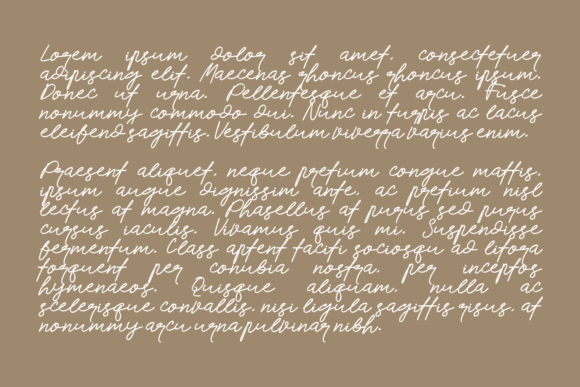 Lorem ipsum dolor sit amet, consectetuer
adipiscing elit. Maecenas rhoncus rhoncus ipsum.
Donec ut urna. Pellentesque et arcu. Fusce
nonummy commodo dui. Nunc in turpis ac lacus
eleifend sagittis. Vestibulum viverra varius enim.

Praesent aliquet, neque pretium congue mattis,
ipsum augue dignissim ante, ac pretium nisl
lectus at magna. Phasellus at purus sed purus
cursus iaculis. Vivamus quis mi. Suspendisse
fermentum. Class aptent taciti sociosqu ad litora
torquent per conubia nostra, per inceptos
hymenaeos. Quisque aliquam, nulla ac
scelerisque convallis, nisi ligula sagittis risus, at
nonummy arcu urna pulvinar nibh.